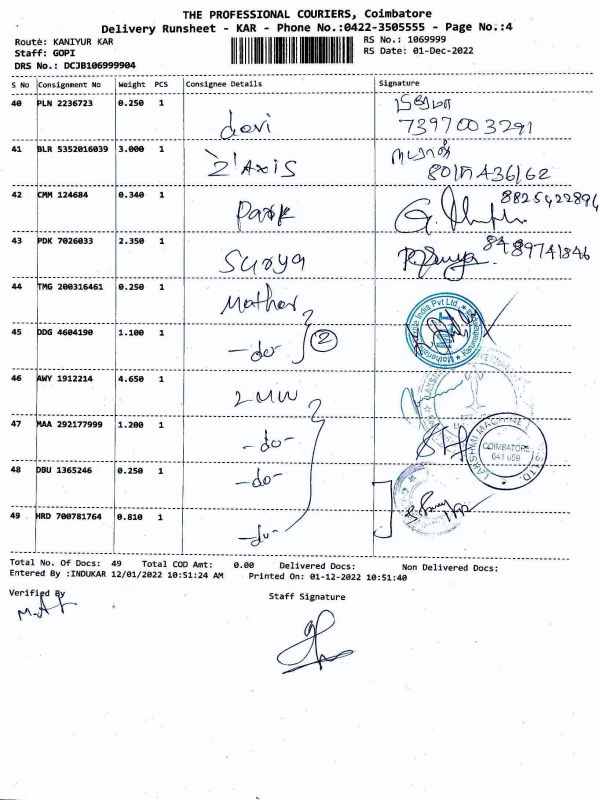 THE PROFESSIONAL COURIERS, Coimbatore
Delivery Runsheet - KAR - Phone No.:0422-3505555 - Page No.:4
Route: KANIYUR KAR
RS No.: 1069999
Staff: GOPI
RS Date: 01-Dec-2022
DRS No.: DCJB106999904
S No Consignment No Weight PCS Consignee Details Signature
40 PLN 2236723 0.250 1 devi
7397003291
41 BLR 5352016039 3.000 1 Z'Axis
42 CMM 124684 0.340 1 Park
8825422894
43 PDK 7026033 2.350 1 Surya
8489741846
44 TMG 200316461 0.250 1 Mother
45 DDG 4604190 1.100 1 -do- 2
46 AWY 1912214 4.650 1 LMW
47 MAA 292177999 1.200 1 -do-
COIMBATORE
641 659
48 DBU 1365246 0.250 1 -do-
49 HRD 700781764 0.810 1 -do-
Total No. Of Docs: 49 Total COD Amt: 0.00 Delivered Docs: Non Delivered Docs:
Entered By :INDUKAR 12/01/2022 10:51:24 AM Printed On: 01-12-2022 10:51:40
Verified By
Staff Signature